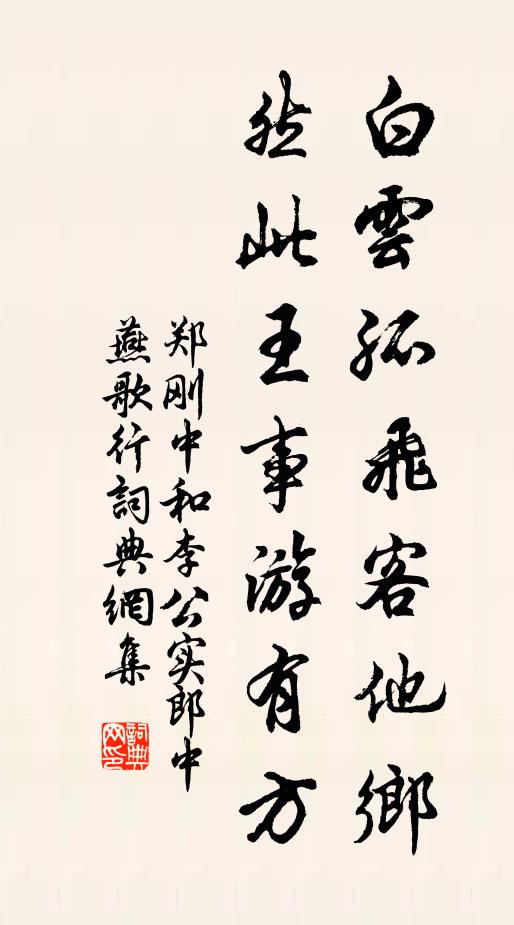 白雲孤飛客他鄉
然此王事游有方
郑刚中和李公实郎中
燕歌行詞典網集
詞典网印